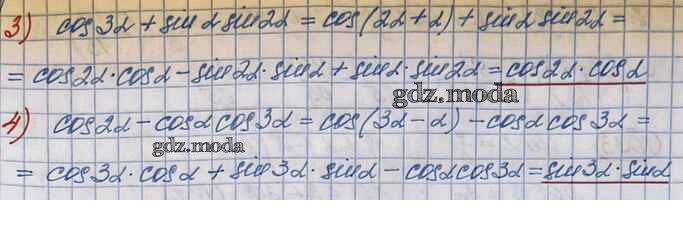 3) cos3α + sinα sin2α = cos(2α+α) + sinα sin2α =
= cos2α·cosα - sin2α·sinα + sinα·sin2α = cos2α·cosα
gdz.moda
4) cos2α - cosα cos3α = cos(3α-α) - cosα cos3α =
gdz.moda
= cos3α·cosα + sin3α·sinα - cosα cos3α = sin3α·sinα